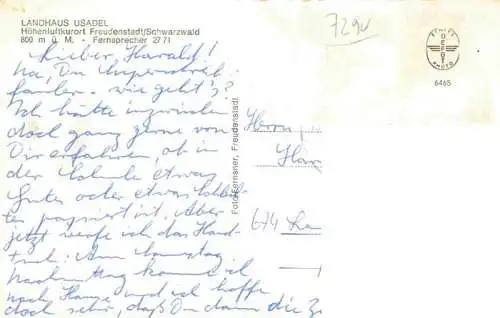 LANDHAUS USADEL
Höhenluftkurort Freudenstadt/Schwarzwald
800 m ü. M. - Fernsprecher 27 71
7290
ECHTE
FOTO
6465
Lieber Harald!
Na, Du
wie geht's?
Ich hätte inzwischen
doch ganz gerne von
Dir erfahren, ob in
der Schule etwas
Gutes oder etwas Schlech-
tes passiert ist. Aber
jetzt werfe ich das Hand-
tuch: Am Samstag
nachmittag komme ich
nach Hause und ich hoffe
doch sehr, daß Du dann die
Foto: Fernsner, Freudenstadt
Herrn
Har
674 Lan